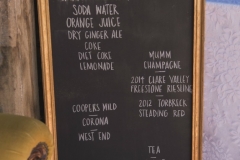 SODA WATER
ORANGE JUICE
DRY GINGER ALE
COKE
DIET COKE
LEMONADE
COOPERS MILD
CORONA
WEST END
MUMM
CHAMPAGNE
2014 CLARE VALLEY
FREESTONE RIESLING
2012 TORBRECK
STEADING RED
TEA